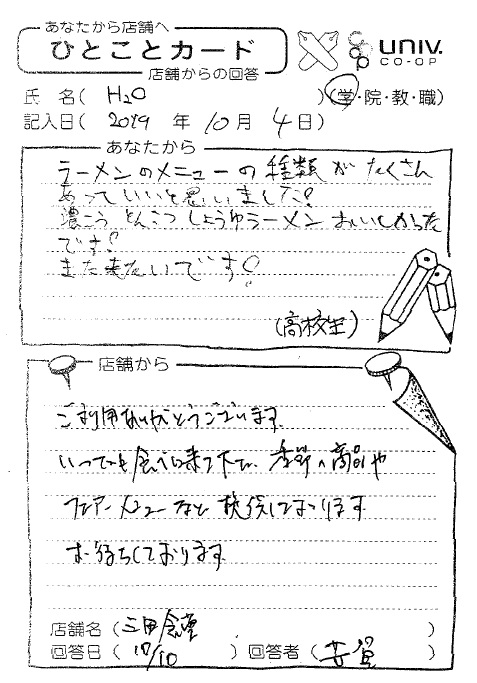 あなたから店舗へ
ひとことカード
店舗からの回答
UNIV.
CO-OP
coop
氏 名( H2O )(学・院・教・職)
記入日( 2019 年 10 月 4 日)
あなたから
ラーメンのメニューの種類がたくさん
あっていいと思いました!
濃こう とんこつ しょうゆラーメン おいしかった
です!
また来たいです!
(高校生)
店舗から
ご利用ありがとうございます。
いつでも食べに来て下さい。季節の商品や
フェアーメニューなど 提供しております
お待ちしております。
店舗名(三田食堂 )
回答日( 10/10 )回答者( )